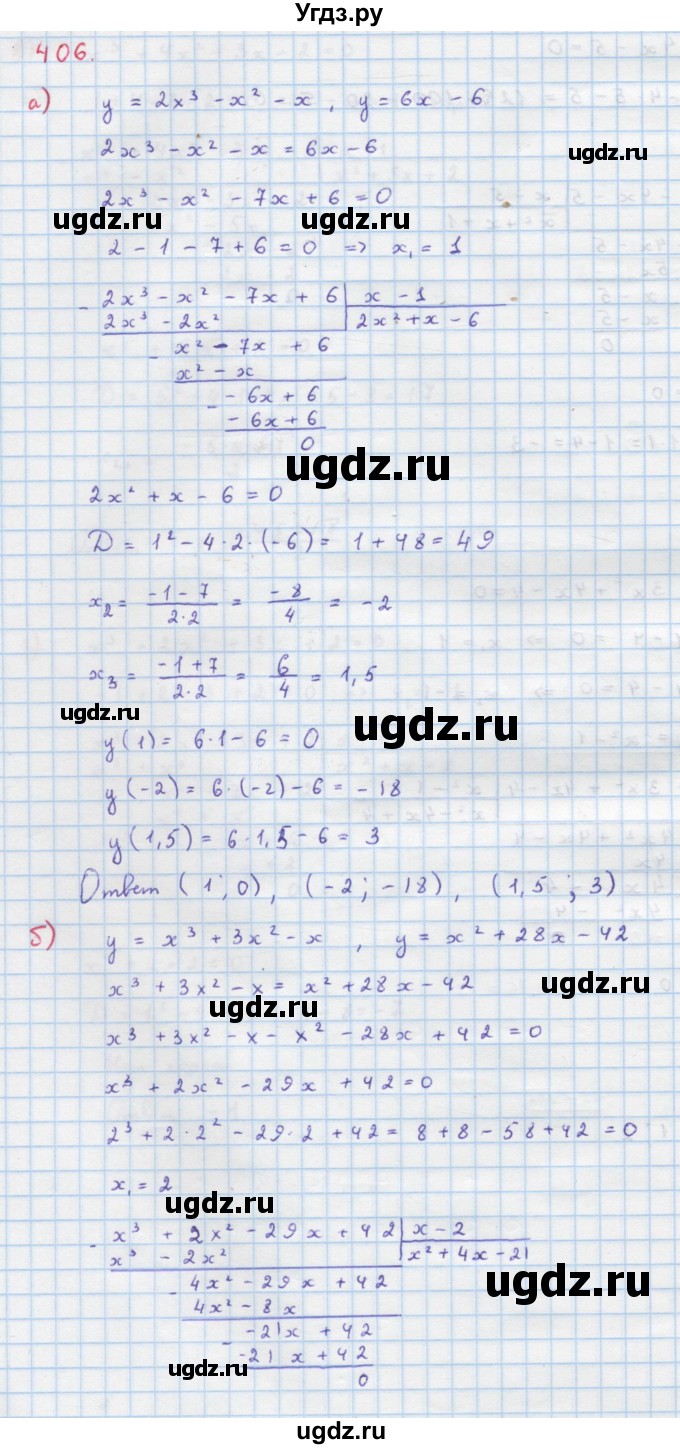 Угдз.ру
406.
а) y = 2x³ - x² - x , y = 6x - 6
2x³ - x² - x = 6x - 6
2x³ - x² - 7x + 6 = 0
ugdz.ru ugdz.ru
2 - 1 - 7 + 6 = 0 => x₁ = 1
- 2x³ - x² - 7x + 6 | x - 1
2x³ - 2x² | 2x² + x - 6
- x² - 7x + 6
x² - x
- - 6x + 6
- 6x + 6
0
ugdz.ru
2x² + x - 6 = 0
D = 1² - 4·2·(-6) = 1 + 48 = 49
x₂ = (-1-7)/(2·2) = (-8)/4 = -2
x₃ = (-1+7)/(2·2) = 6/4 = 1,5
ugdz.ru ugdz.ru
y(1) = 6·1 - 6 = 0
y(-2) = 6·(-2) - 6 = -18
y(1,5) = 6·1,5 - 6 = 3
Ответ (1; 0), (-2; -18), (1,5; 3)
б) y = x³ + 3x² - x , y = x² + 28x - 42
x³ + 3x² - x = x² + 28x - 42
ugdz.ru ugdz.ru
x³ + 3x² - x - x² - 28x + 42 = 0
x³ + 2x² - 29x + 42 = 0
2³ + 2·2² - 29·2 + 42 = 8 + 8 - 58 + 42 = 0
x₁ = 2
ugdz.ru
- x³ + 2x² - 29x + 42 | x - 2
x³ - 2x² | x² + 4x - 21
- 4x² - 29x + 42
4x² - 8x
ugdz.ru
- - 21x + 42
- 21x + 42
0
ugdz.ru
ugdz.ru